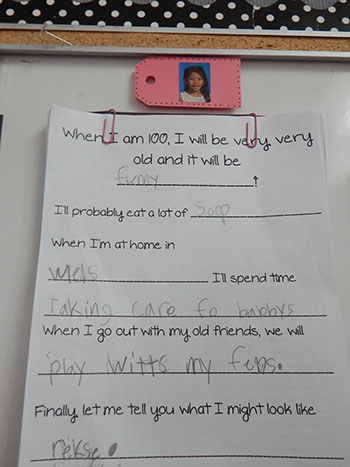 When I am 100, I will be very very
old and it will be
funny!
I'll probably eat a lot of Soap
When I'm at home in
wels I'll spend time
Taking care fo babbys
When I go out with my old friends, we will
play witts my fens.
Finally, let me tell you what I might look like
rekse.